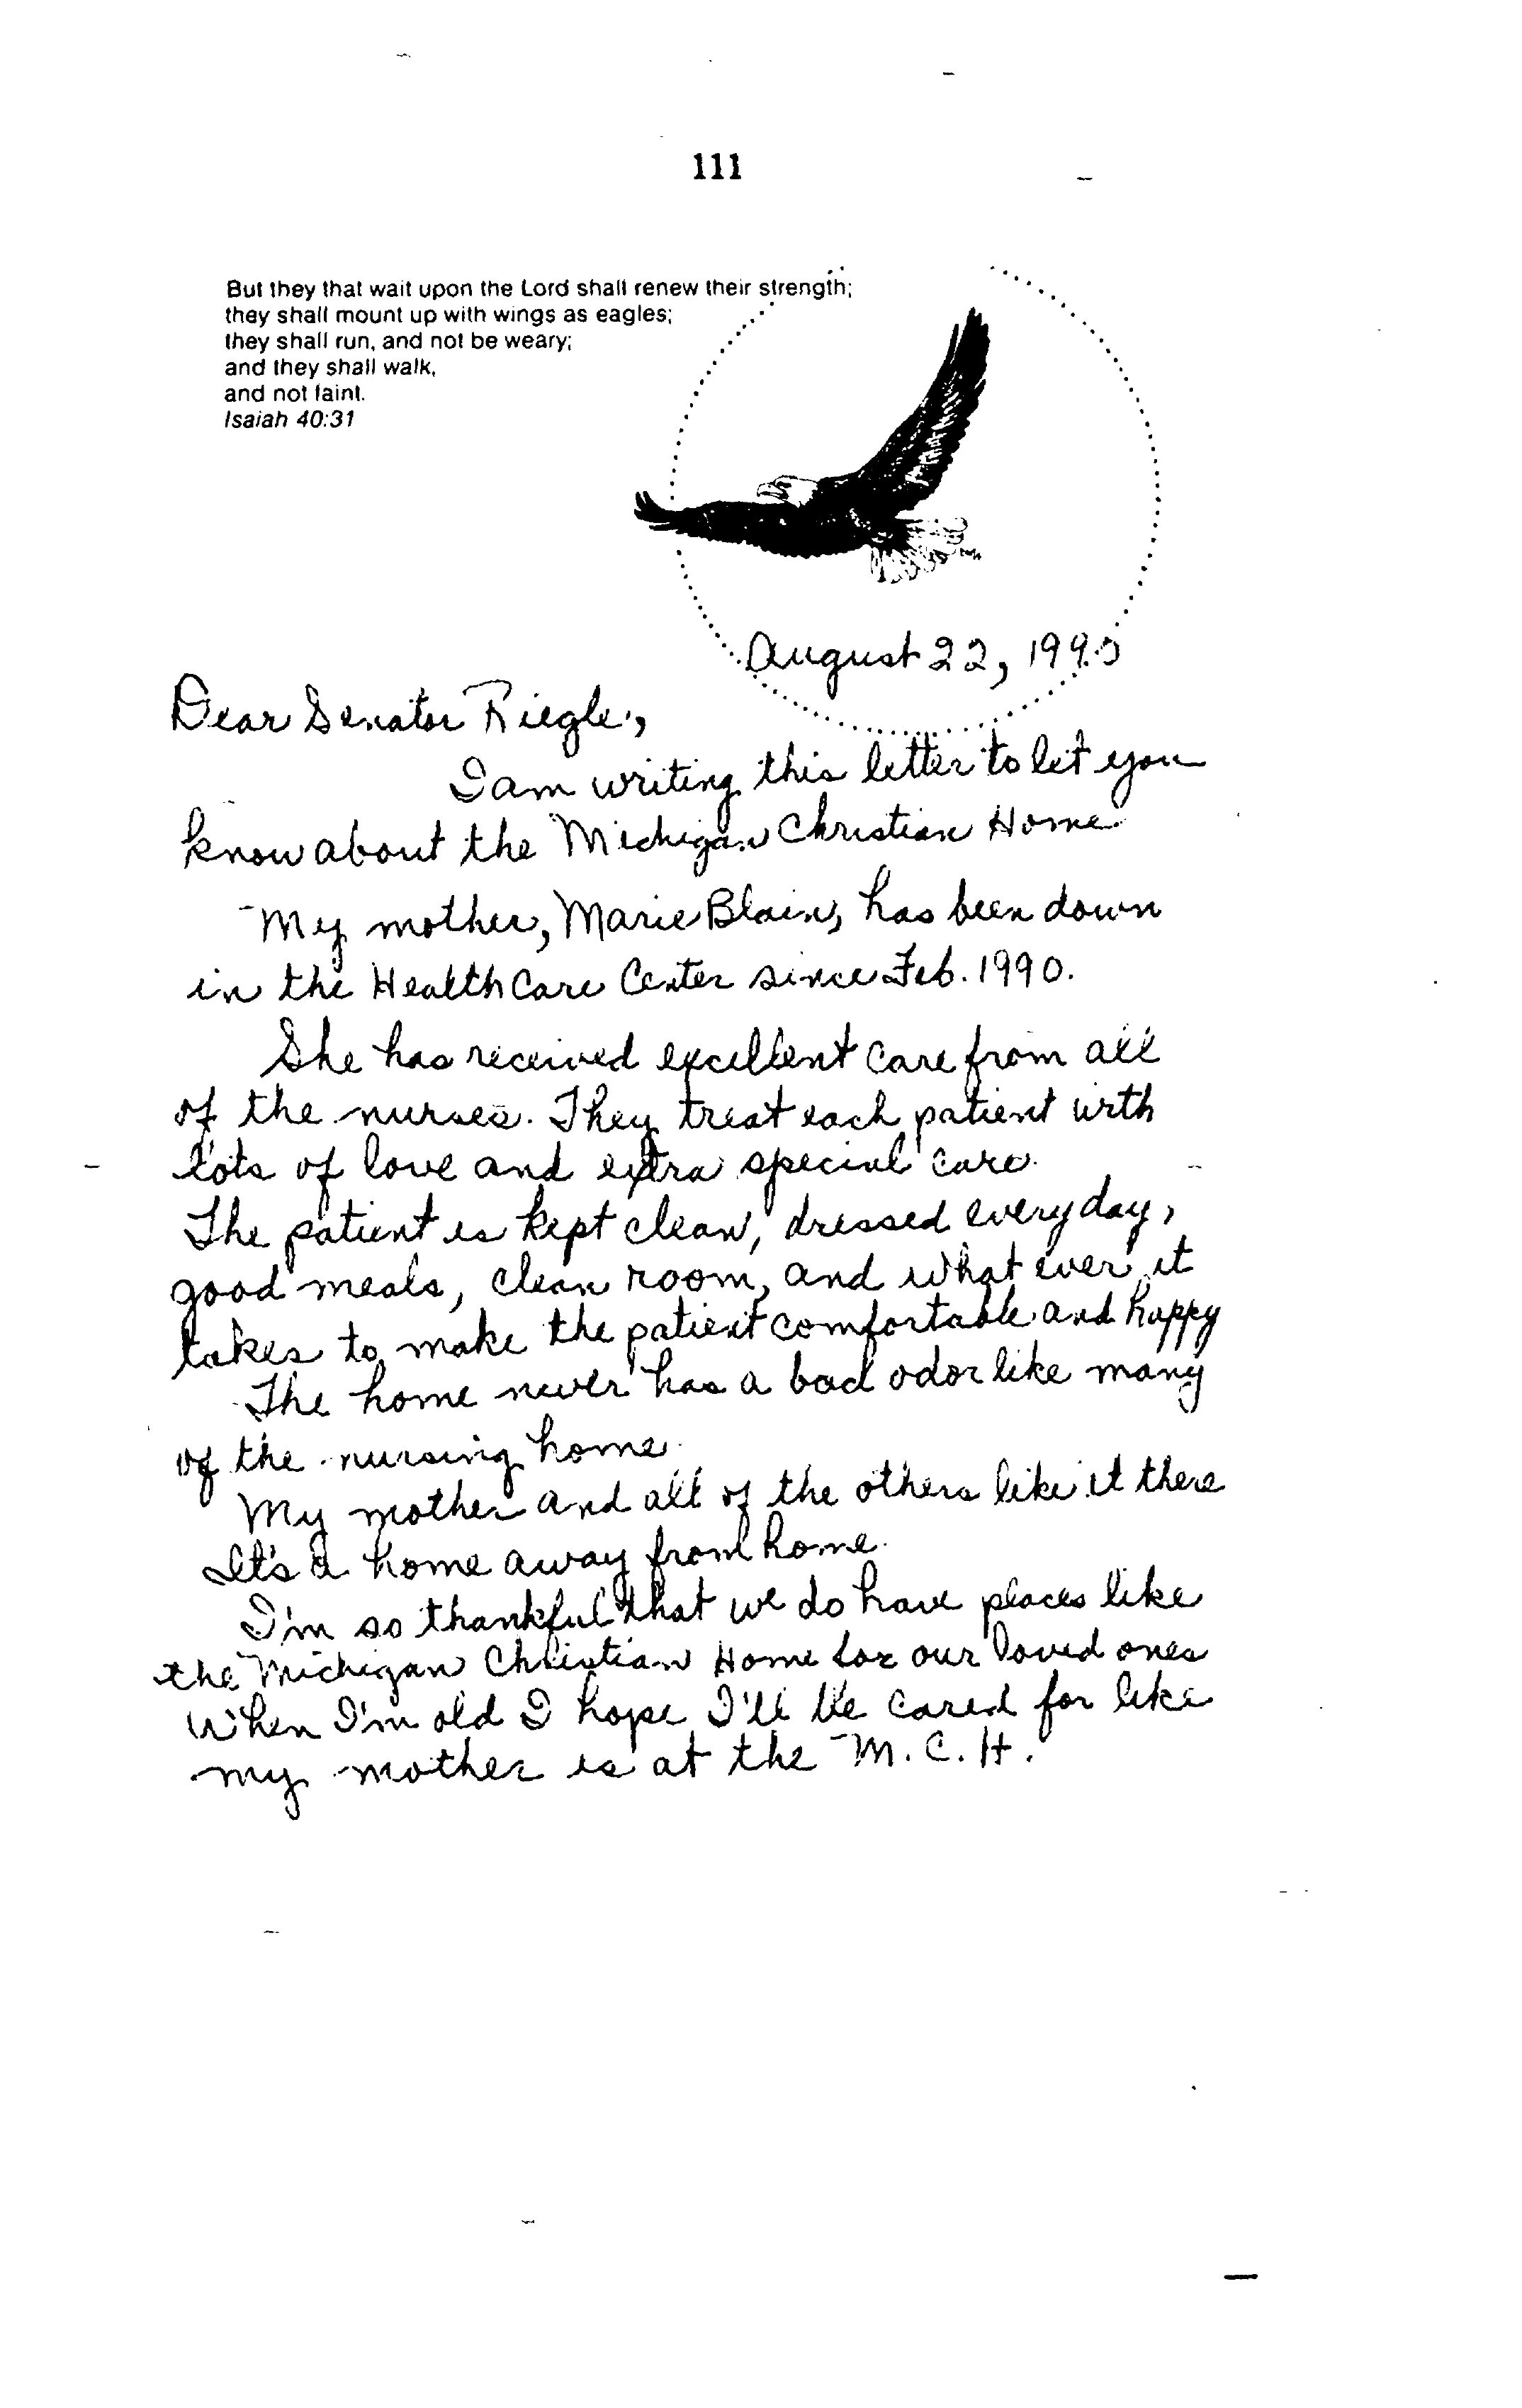 111
But they that wait upon the Lord shall renew their strength;
they shall mount up with wings as eagles;
they shall run, and not be weary;
and they shall walk,
and not faint.
Isaiah 40:31
August 22, 1990
Dear Senator Riegle,
I am writing this letter to let you
know about the Michigan Christian Home
My mother, Marie Blain, has been down
in the Health Care Center since Feb. 1990.
She has received excellent care from all
of the nurses. They treat each patient with
lots of love and extra special care.
The patient is kept clean, dressed every day,
good meals, clean room, and what ever it
takes to make the patient comfortable and happy
The home never has a bad odor like many
of the nursing home.
My mother and all of the others like it there
It's a home away from home.
I'm so thankful that we do have places like
the Michigan Christian Home for our loved ones
When I'm old I hope I'll be cared for like
my mother is at the M. C. H.